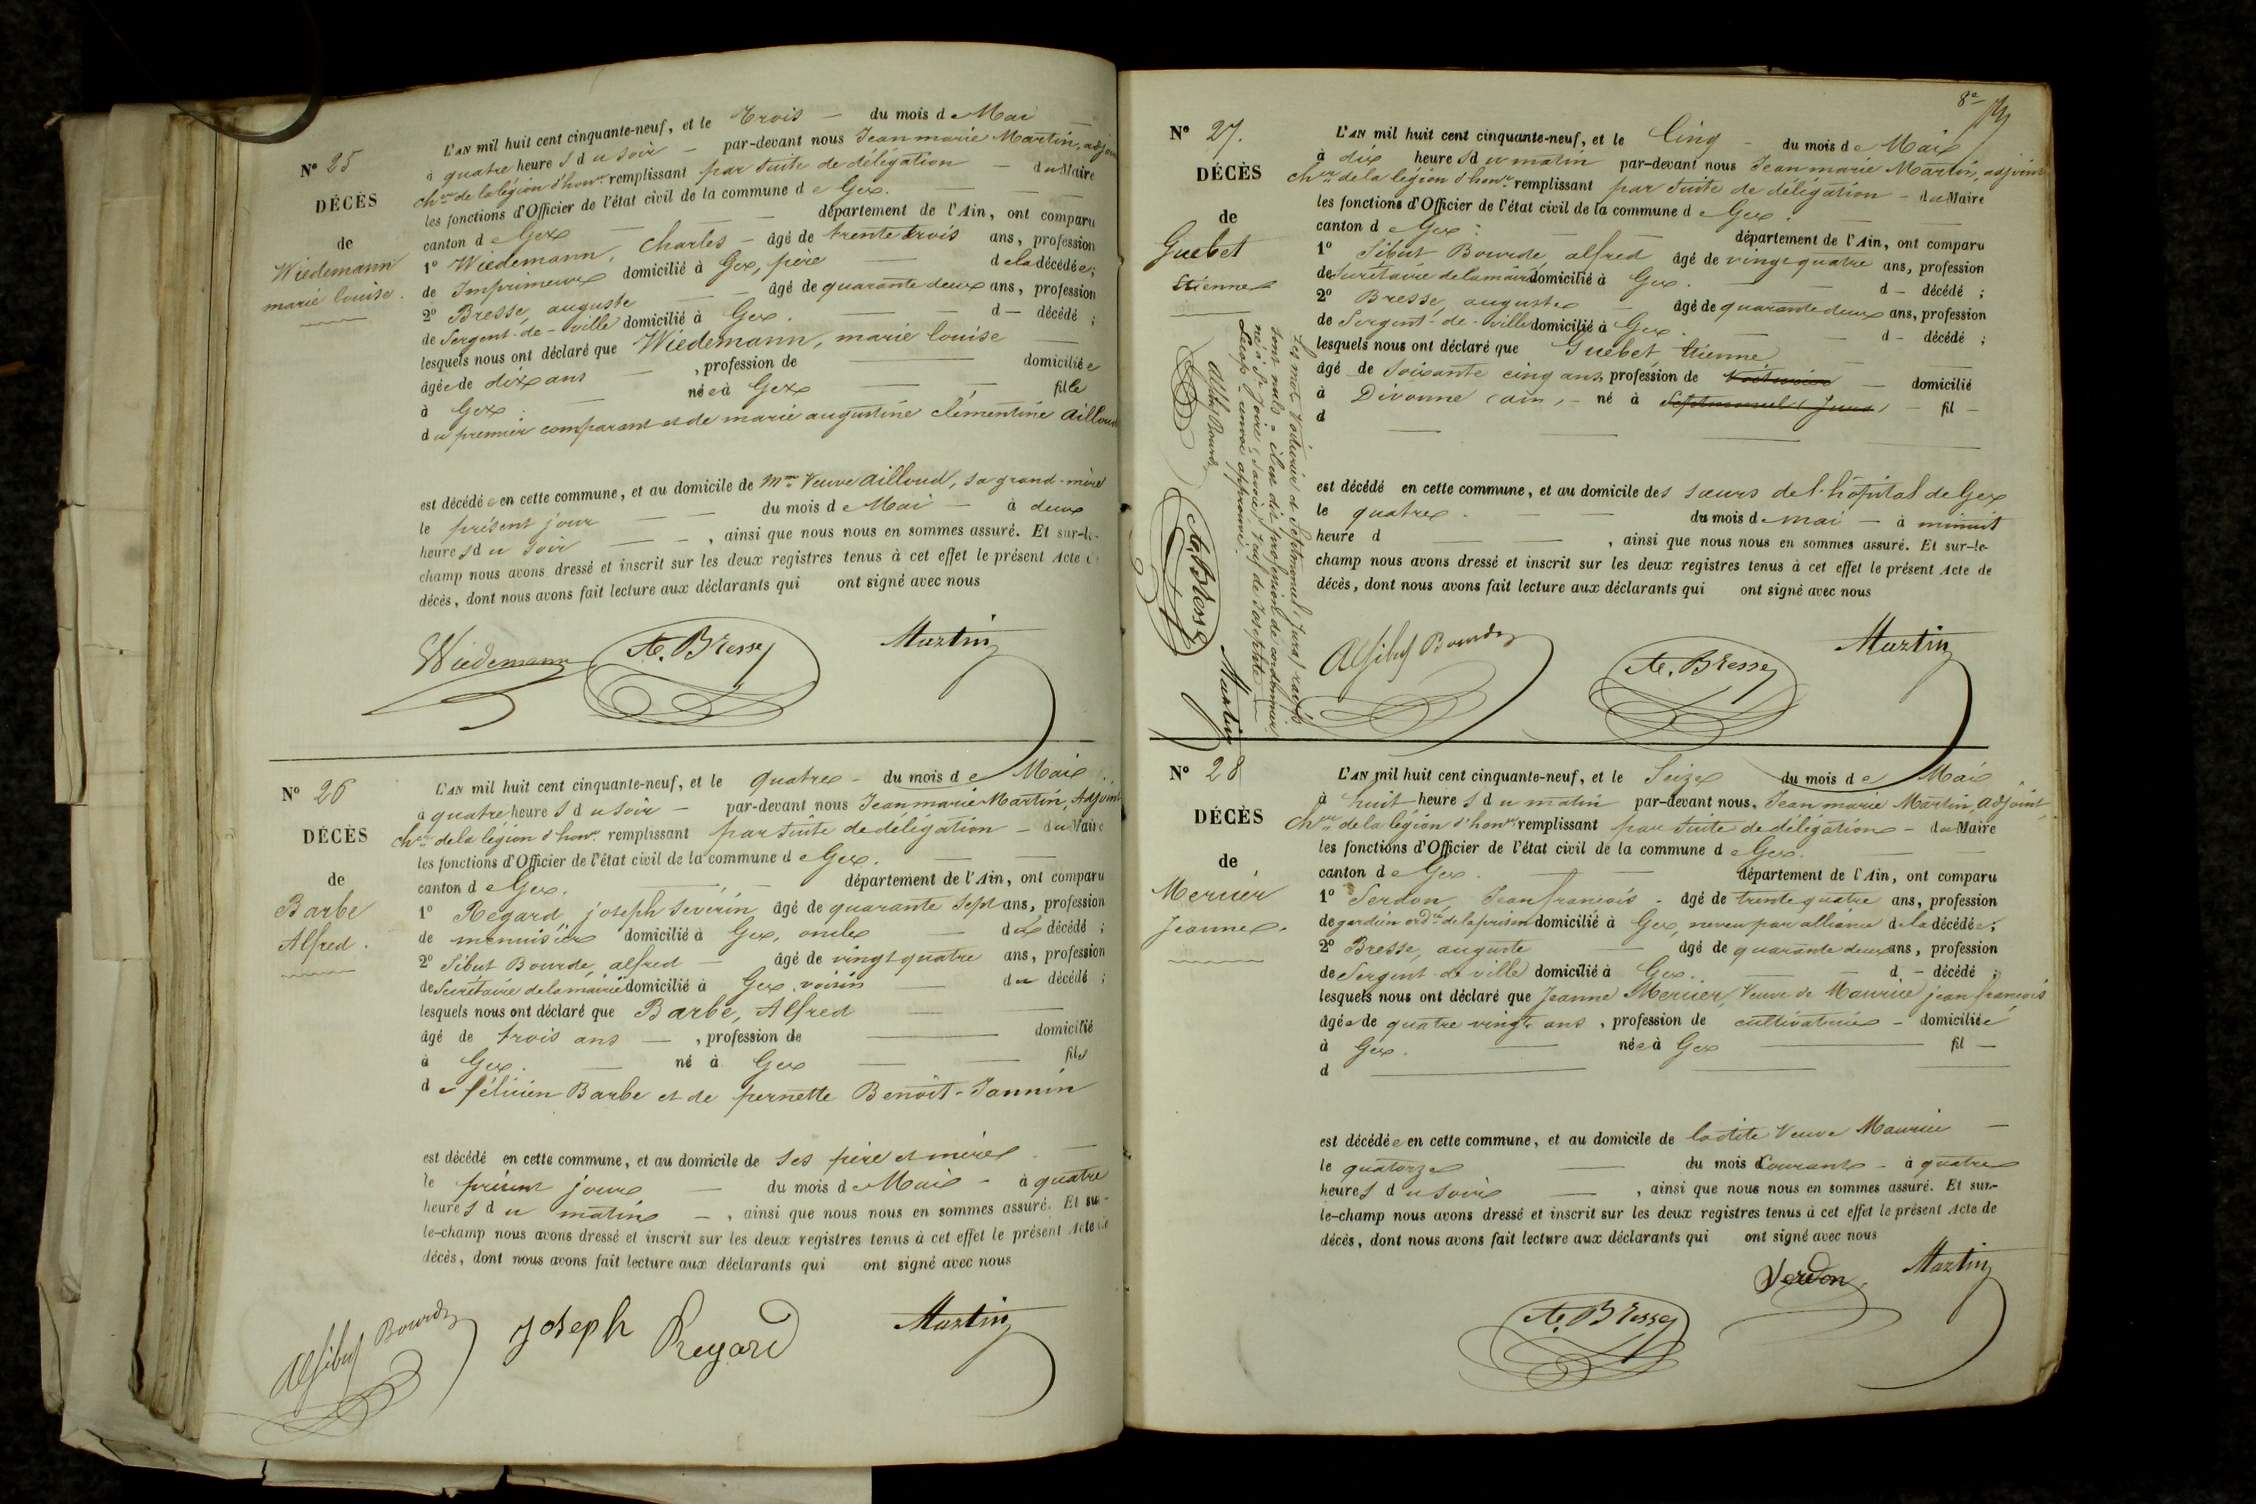 Nº 25
DÉCÈS
de
Wiedemann
marie louise.
L'AN mil huit cent cinquante-neuf, et le Trois — du mois de Mai —
à quatre heures du soir — par-devant nous Jean marie Martin, adjoint
chᵉʳ de la légion d'honʳ remplissant par suite de délégation — du Maire
les fonctions d'Officier de l'état civil de la commune de Gex.
canton de Gex — département de l'Ain, ont comparu
1º Wiedemann, Charles — âgé de trente trois ans, profession
de Imprimeur domicilié à Gex, père — de la décédée;
2º Bresse, auguste — âgé de quarante deux ans, profession
de Sergent-de-ville domicilié à Gex. — d — décédé ;
lesquels nous ont déclaré que Wiedemann, marie louise
âgée de dix ans — , profession de — domiciliée
à Gex. — née à Gex — fille
du premier comparant et de marie augustine clémentine Ailloud
est décédée en cette commune, et au domicile de Mᵐᵉ Veuve Ailloud, sa grand-mère
le présent jour — du mois de Mai — à deux
heures du soir — , ainsi que nous nous en sommes assuré. Et sur-le-
champ nous avons dressé et inscrit sur les deux registres tenus à cet effet le présent Acte de
décès, dont nous avons fait lecture aux déclarants qui ont signé avec nous
Wiedemann A. Bresse Martin
Nº 26
DÉCÈS
de
Barbe
Alfred.
L'AN mil huit cent cinquante-neuf, et le quatre — du mois de Mai
à quatre heures du soir — par-devant nous Jean marie Martin, Adjoint
chᵉʳ de la légion d'honʳ remplissant par suite de délégation — du Maire
les fonctions d'Officier de l'état civil de la commune de Gex.
canton de Gex. — département de l'Ain, ont comparu
1º Regard, joseph Séverin âgé de quarante sept ans, profession
de menuisier domicilié à Gex, oncle — du décédé ;
2º Sibut Bourde, alfred — âgé de vingt quatre ans, profession
de Secrétaire de la mairie domicilié à Gex, voisin — du décédé ;
lesquels nous ont déclaré que Barbe, Alfred
âgé de trois ans — , profession de — domicilié
à Gex. — né à Gex — fils
de félicien Barbe et de pernette Benoît-Jannin
est décédé en cette commune, et au domicile de ses père et mère
le présent jour — du mois de Mai — à quatre
heures du matin — , ainsi que nous nous en sommes assuré. Et sur-
le-champ nous avons dressé et inscrit sur les deux registres tenus à cet effet le présent Acte de
décès, dont nous avons fait lecture aux déclarants qui ont signé avec nous
A Sibut Bourde Joseph Regard Martin
8ᵉ
Nº 27.
DÉCÈS
de
Guebet
Etienne
L'AN mil huit cent cinquante-neuf, et le Cinq — du mois de Mai
à dix heures du matin par-devant nous Jean marie Martin, adjoint
chᵉʳ de la légion d'honʳ remplissant par suite de délégation — du Maire
les fonctions d'Officier de l'état civil de la commune de Gex.
canton de Gex. — département de l'Ain, ont comparu
1º Sibut Bourde, alfred âgé de vingt quatre ans, profession
de Secrétaire de la mairie domicilié à Gex. — d — décédé ;
2º Bresse, auguste — âgé de quarante deux ans, profession
de Sergent-de-ville domicilié à Gex. — d — décédé ;
lesquels nous ont déclaré que Guebet, Etienne
âgé de soixante cinq ans, profession de Voiturier — domicilié
à Divonne (ain) — né à Septmoncel (Jura) — fil —
d —
est décédé en cette commune, et au domicile des sœurs de l'hôpital de Gex
le quatre — du mois de mai — à minuit
heure d — , ainsi que nous nous en sommes assuré. Et sur-le-
champ nous avons dressé et inscrit sur les deux registres tenus à cet effet le présent Acte de
décès, dont nous avons fait lecture aux déclarants qui ont signé avec nous
A Sibut Bourde A. Bresse Martin
Les mots Voiturier et Septmoncel (Jura) rayés
sont nuls = il en dit profession de cordonnier,
né à Sᵗ Joire (Savoie) fils de Josephte —
approuvé.
A Sibut Bourde A. Bresse Martin
Nº 28
DÉCÈS
de
Mercier
Jeanne.
L'AN mil huit cent cinquante-neuf, et le Seize du mois de Mai
à huit heures du matin par-devant nous, Jean marie Martin, adjoint,
chᵉʳ de la légion d'honʳ remplissant par suite de délégation — du Maire
les fonctions d'Officier de l'état civil de la commune de Gex.
canton de Gex. — département de l'Ain, ont comparu
1º Serdon, Jean francois. âgé de trente quatre ans, profession
de gardien ordʳᵉ de la prison domicilié à Gex, neveu par alliance de la décédée;
2º Bresse, auguste — âgé de quarante deux ans, profession
de Sergent de ville domicilié à Gex. — d — décédé ;
lesquels nous ont déclaré que Jeanne Mercier, Veuve de Maurice jean francois
âgée de quatre vingt ans, profession de cultivatrice — domiciliée
à Gex. — née à Gex — fil —
d —
est décédée en cette commune, et au domicile de ladite Veuve Maurice —
le quatorze — du mois Courant — à quatre
heures du soir — , ainsi que nous nous en sommes assuré. Et sur-
le-champ nous avons dressé et inscrit sur les deux registres tenus à cet effet le présent Acte de
décès, dont nous avons fait lecture aux déclarants qui ont signé avec nous
Serdon. Martin
A. Bresse